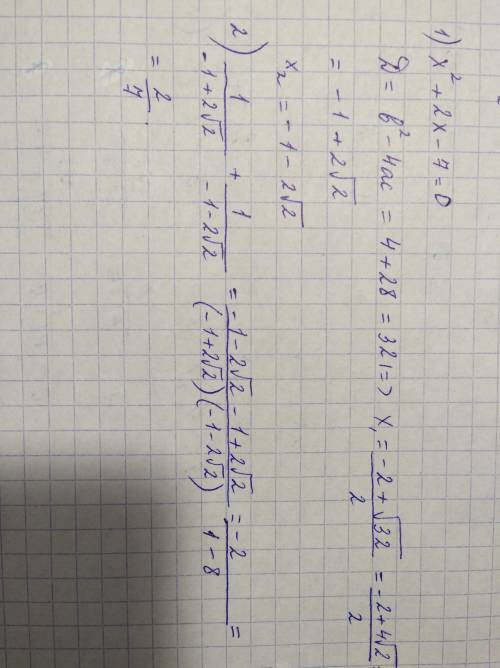 1) x² + 2x - 7 = 0
D = b² - 4ac = 4 + 28 = 32 | => x₁ = (-2 + √32)/2 = (-2 + 4√2)/2
= -1 + 2√2
x₂ = -1 - 2√2
2) 1/(-1 + 2√2) + 1/(-1 - 2√2) = (-1 - 2√2 - 1 + 2√2)/((-1 + 2√2)(-1 - 2√2)) = -2/(1 - 8) =
= 2/7.